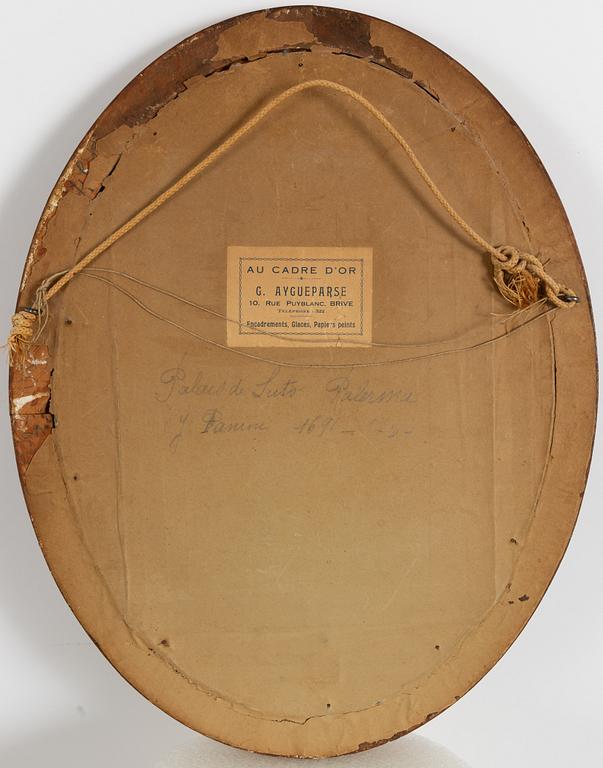 AU CADRE D'OR
G. AYGUEPARSE
10, RUE PUYBLANC, BRIVE
TÉLÉPHONE : 322
Encadrements, Glaces, Papiers peints
Palais de Palerma
J. Panini